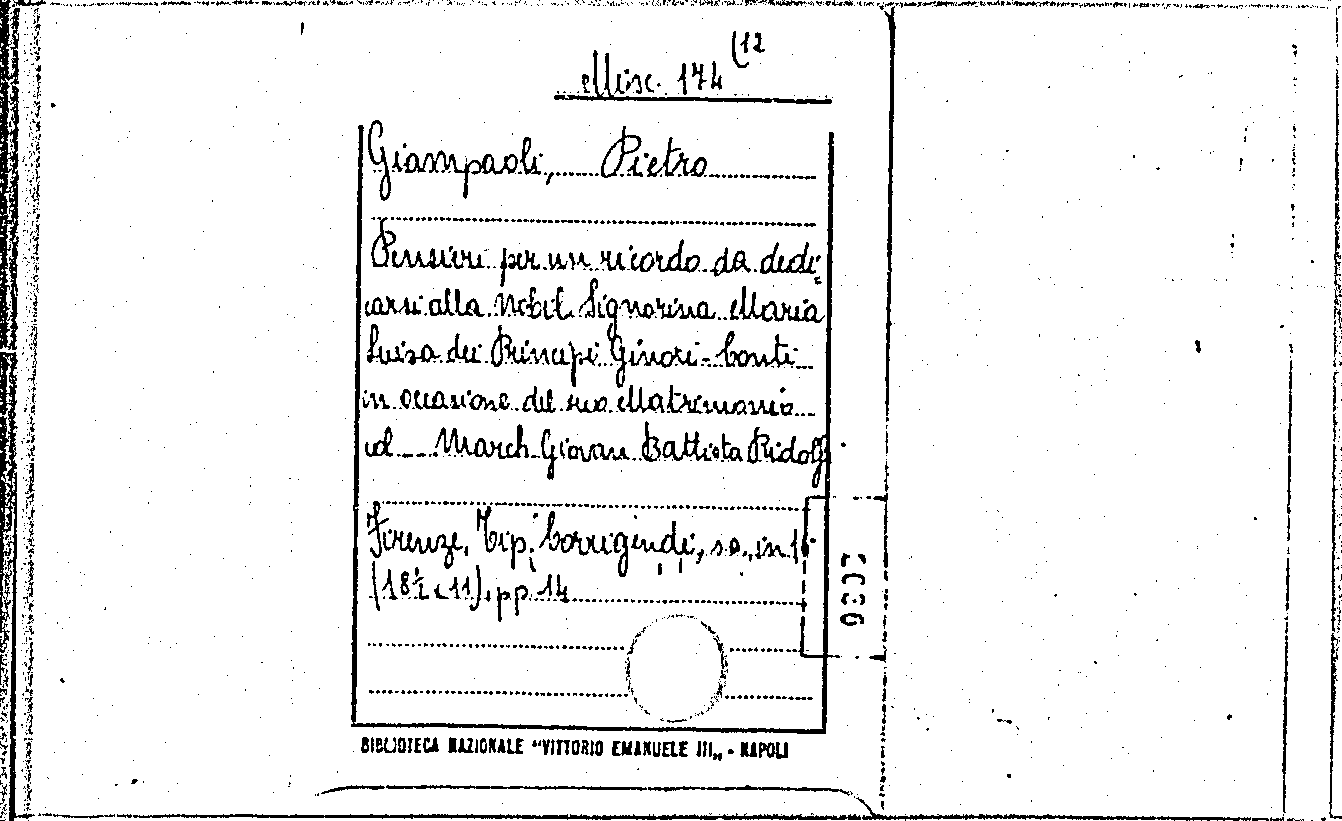 Misc. 174 (12
Giampaoli, Pietro
Pensieri per un ricordo da dedi=
carsi alla Nobil Signorina Maria
Luisa dei Principi Ginori-Conti
in occasione del suo Matrimonio
col March Giovan Battista Ridolfi
Firenze, Tip. Corrigendi, s.a., in 16°
(18½ x 11), pp 14
BIBLIOTECA NAZIONALE "VITTORIO EMANUELE III„ - NAPOLI